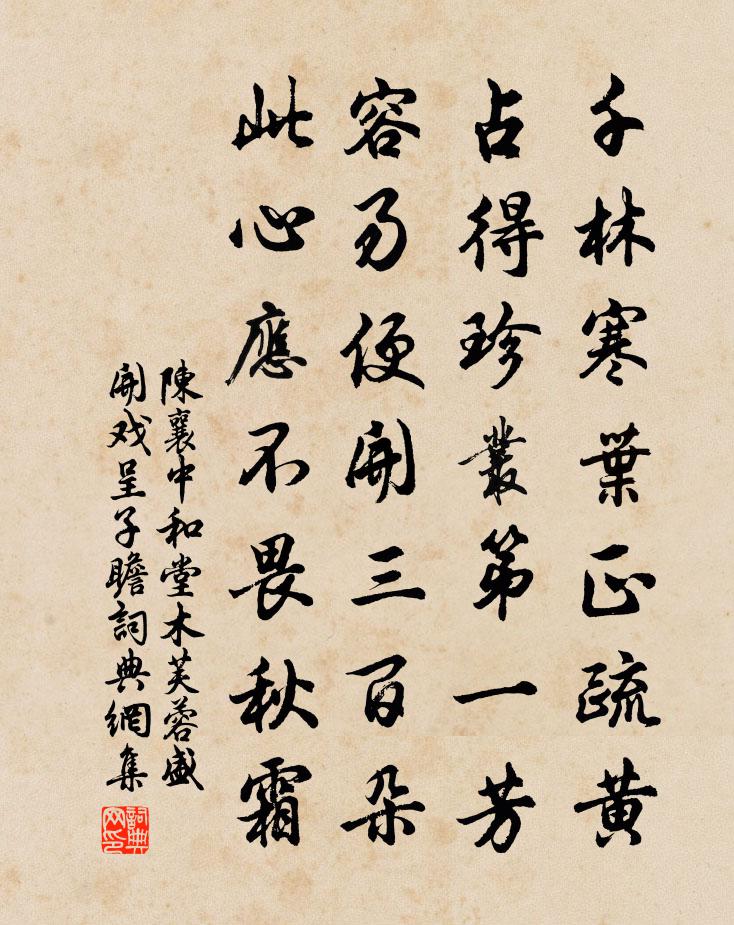 千林寒葉正疏黃
占得珍叢第一芳
容易便開三百朵
此心應不畏秋霜
陳襄中和堂木芙蓉盛
開戏呈子瞻詞典網集
詞典
网印